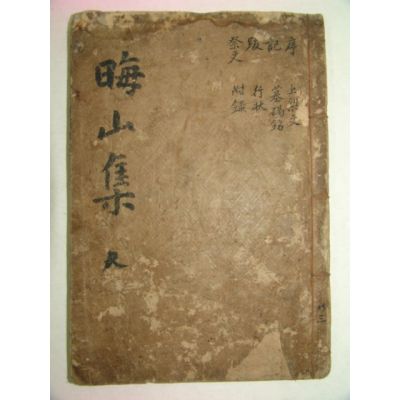 晦山集
序 記 跋 祭文
上樑文
墓碣銘
行狀
附錄
共三